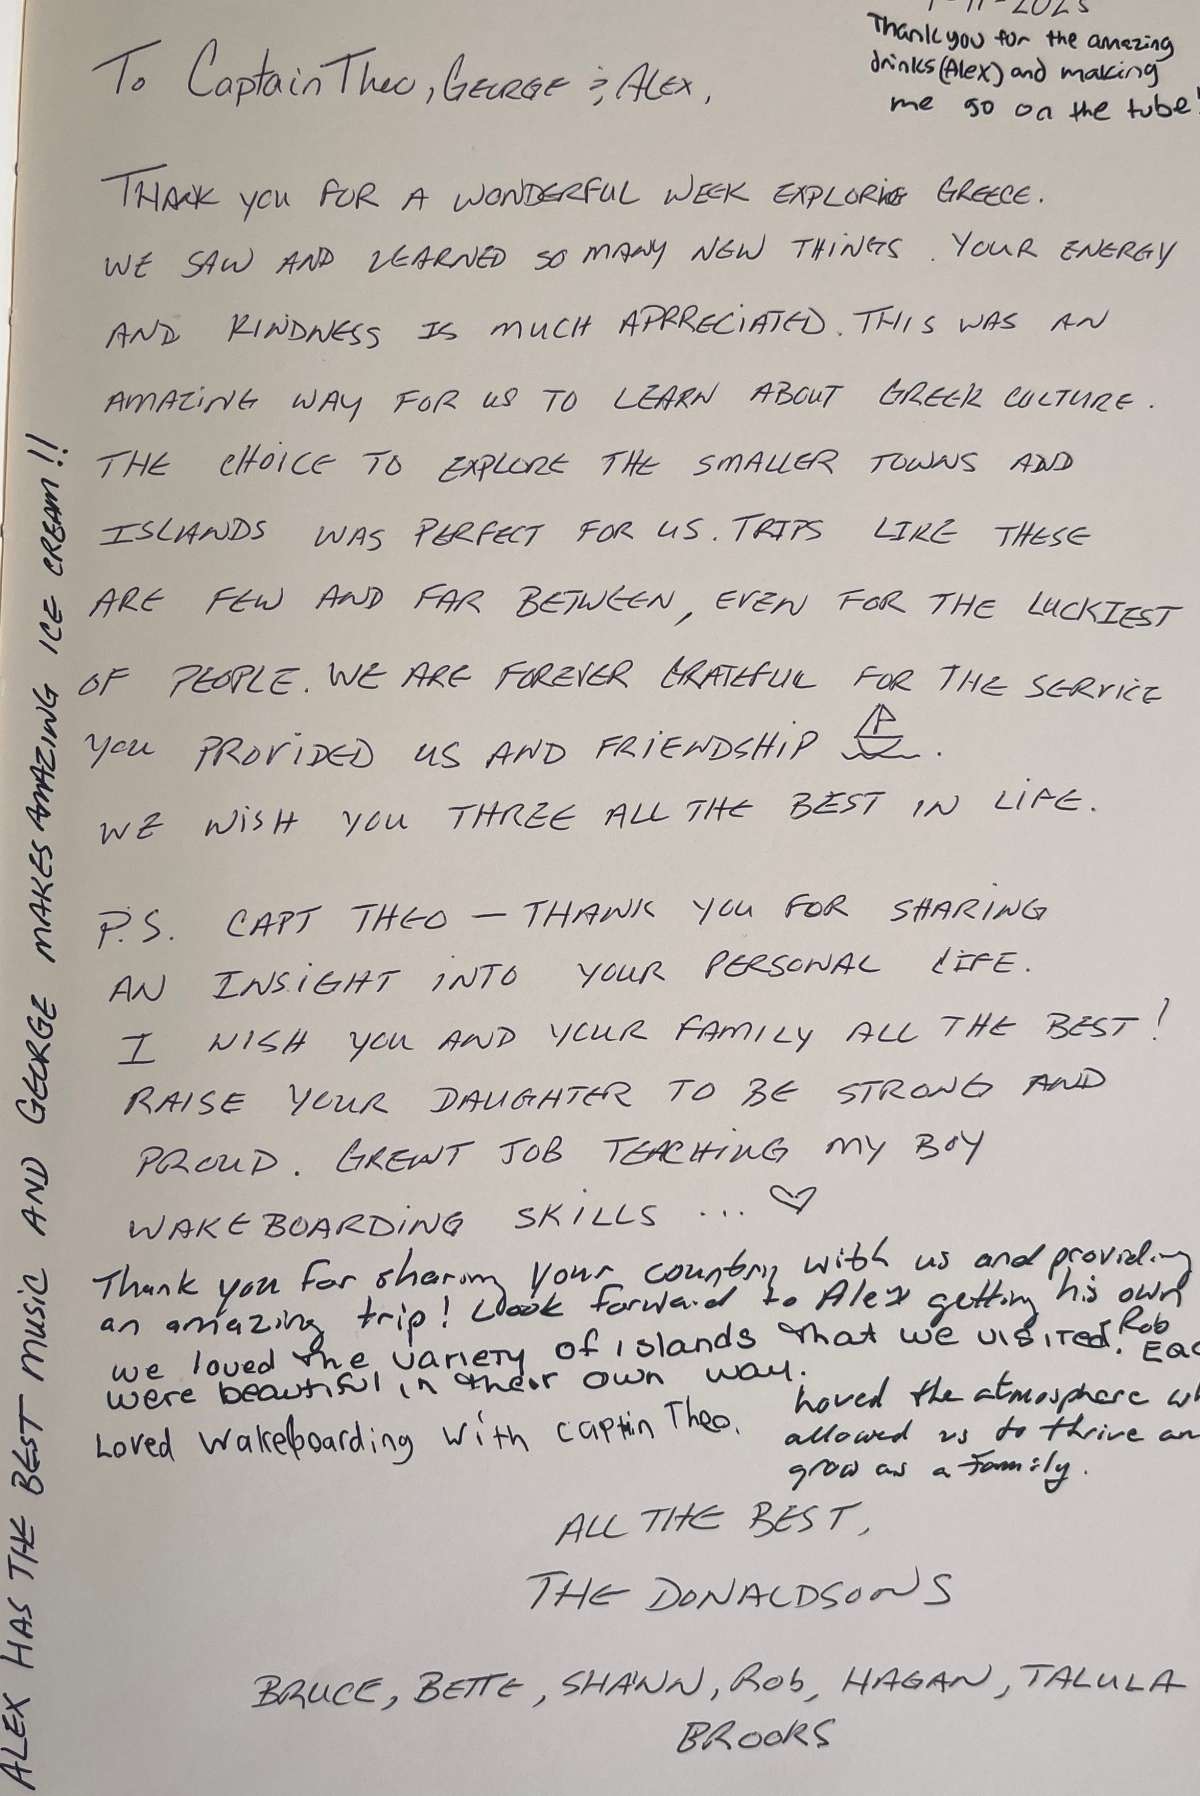 Thank you for the amazing
drinks (Alex) and making
me go on the tube!
To Captain Theo, GEORGE & ALEX,
THANK YOU FOR A WONDERFUL WEEK EXPLORING GREECE.
WE SAW AND LEARNED SO MANY NEW THINGS. YOUR ENERGY
AND KINDNESS IS MUCH APPRECIATED. THIS WAS AN
AMAZING WAY FOR US TO LEARN ABOUT GREEK CULTURE.
THE CHOICE TO EXPLORE THE SMALLER TOWNS AND
ISLANDS WAS PERFECT FOR US. TRIPS LIKE THESE
ARE FEW AND FAR BETWEEN, EVEN FOR THE LUCKIEST
OF PEOPLE. WE ARE FOREVER GRATEFUL FOR THE SERVICE
YOU PROVIDED US AND FRIENDSHIP.
WE WISH YOU THREE ALL THE BEST IN LIFE.
P.S. CAPT THEO — THANK YOU FOR SHARING
AN INSIGHT INTO YOUR PERSONAL LIFE.
I WISH YOU AND YOUR FAMILY ALL THE BEST!
RAISE YOUR DAUGHTER TO BE STRONG AND
PROUD. GREAT JOB TEACHING MY BOY
WAKEBOARDING SKILLS ... ♡
Thank you for sharing your country with us and providing
an amazing trip! Look forward to Alex getting his own
Rob
we loved the variety of islands that we visited.
were beautiful in their own way.
Loved Wakeboarding with captin Theo.
Loved the atmosphere
allowed us to thrive
grow as a family.
ALL THE BEST,
THE DONALDSONS
BRUCE, BETTE, SHAWN, ROB, HAGAN, TALULA
BROOKS
ALEX HAS THE BEST MUSIC AND GEORGE MAKES AMAZING ICE CREAM!!